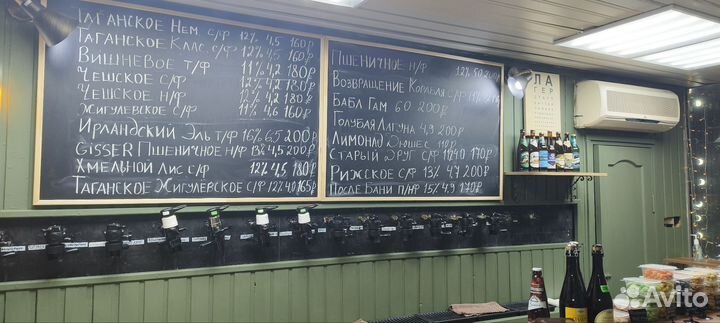 Таганское Нем с/ф 12% 4,5 160₽
Таганское Клас. с/ф 12% 4,5 160₽
Вишневое т/ф 11% 4,2 180₽
Чешское с/ф 12% 4,2 180₽
Чешское н/ф 12% 4,2 180₽
Жигулевское с/ф 11% 4,6 160₽
Ирландский Эль т/ф 16% 6,5 200₽
Gisser Пшеничное н/ф 13% 4,5 200₽
Хмельной Лис с/ф 12% 4,5 180₽
Таганское Жигулёвское с/ф 12% 4.0 165₽
Пшеничное н/ф 12% 5.0 200₽
Возвращение Корабля с/ф
Бабл Гам 6.0 200₽
Голубая Лагуна 4,9 200₽
Лимонад Дюшес 110₽
Старый Друг с/ф 11% 4.0 170₽
Рижское с/ф 13% 4,7 200₽
После Бани п/нф 15% 4.9 170₽
ЛА
ГЕР
Avito